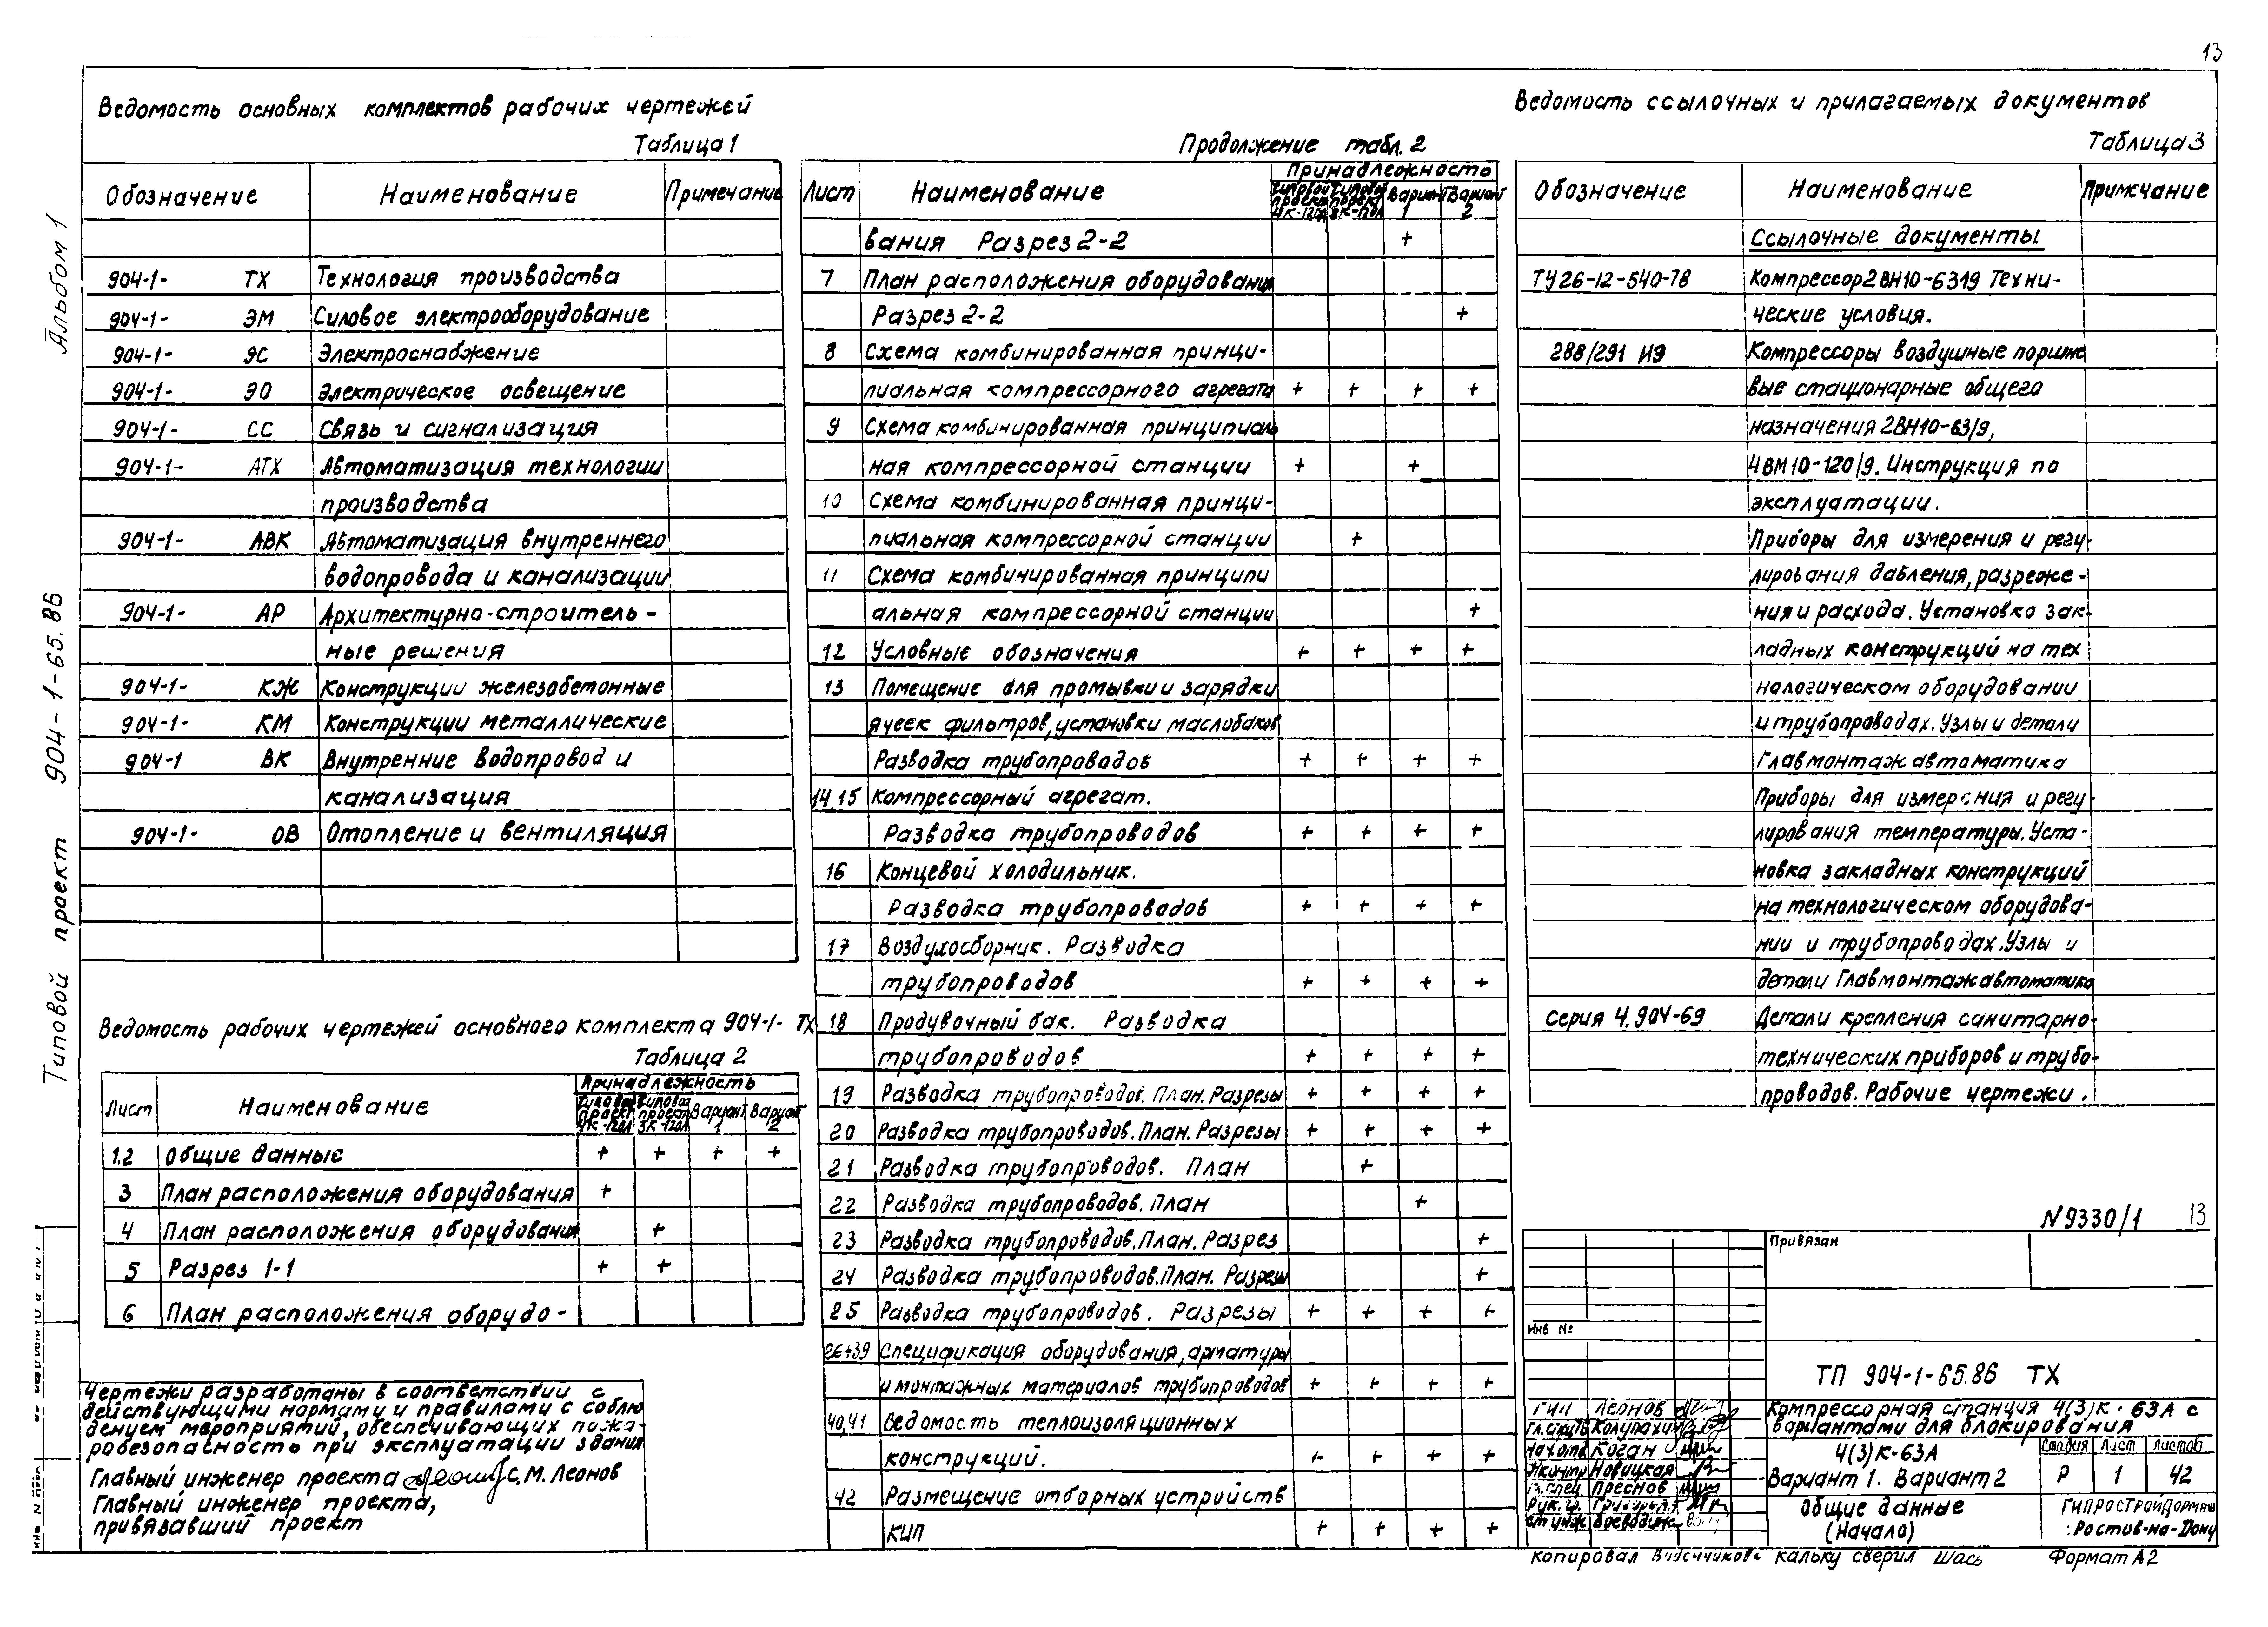 13
Альбом 1
Типовой проект 904-1-65.86
Ведомость основных комплектов рабочих чертежей
Таблица 1
Обозначение Наименование Примечание
904-1- ТХ Технология производства
904-1- ЭМ Силовое электрооборудование
904-1- ЭС Электроснабжение
904-1- ЭО Электрическое освещение
904-1- СС Связь и сигнализация
904-1- АТХ Автоматизация технологии
производства
904-1- АВК Автоматизация внутреннего
водопровода и канализации
904-1- АР Архитектурно-строитель-
ные решения
904-1- КЖ Конструкции железобетонные
904-1- КМ Конструкции металлические
904-1 ВК Внутренние водопровод и
канализация
904-1- ОВ Отопление и вентиляция
Ведомость рабочих чертежей основного комплекта 904-1- ТХ
Таблица 2
Лист Наименование Принадлежность
Типовой проект 4К-120А Типовой проект 3К-120А Вариант 1 Вариант 2
1.2 Общие данные + + + +
3 План расположения оборудования +
4 План расположения оборудования +
5 Разрез 1-1 + +
6 План расположения оборудо-
Чертежи разработаны в соответствии с
действующими нормами и правилами с соблю
дением мероприятий, обеспечивающих пожа-
робезопасность при эксплуатации здания
Главный инженер проекта С. М. Леонов
Главный инженер проекта,
привязавший проект
Продолжение табл. 2
Лист Наименование Принадлежность
Типовой проект 4К-120А Типовой проект 3К-120А Вариант 1 Вариант 2
вания Разрез 2-2 +
7 План расположения оборудования
Разрез 2-2 +
8 Схема комбинированная принци-
пиальная компрессорного агрегата + + + +
9 Схема комбинированная принципиаль
ная компрессорной станции + +
10 Схема комбинированная принци-
пиальная компрессорной станции +
11 Схема комбинированная принципи
альная компрессорной станции +
12 Условные обозначения + + + +
13 Помещение для промывки и зарядки
ячеек фильтров, установки маслобаков
Разводка трубопроводов + + + +
14,15 Компрессорный агрегат.
Разводка трубопроводов + + + +
16 Концевой холодильник.
Разводка трубопроводов + + + +
17 Воздухосборник. Разводка
трубопроводов + + + +
18 Продувочный бак. Разводка
трубопроводов + + + +
19 Разводка трубопроводов. План. Разрезы + + + +
20 Разводка трубопроводов. План. Разрезы + + + +
21 Разводка трубопроводов. План +
22 Разводка трубопроводов. План +
23 Разводка трубопроводов. План. Разрез +
24 Разводка трубопроводов. План. Разрезы +
25 Разводка трубопроводов. Разрезы + + + +
26÷39 Спецификация оборудования, арматуры
и монтажных материалов трубопроводов + + + +
40,41 Ведомость теплоизоляционных
конструкций. + + + +
42 Размещение отборных устройств
КИП + + + +
Ведомость ссылочных и прилагаемых документов
Таблица 3
Обозначение Наименование Примечание
Ссылочные документы
ТУ26-12-540-78 Компрессор 2ВН10-6319 Техни-
ческие условия.
288/291 ИЭ Компрессоры воздушные поршне
вые стационарные общего
назначения 2ВН10-63/9,
4ВМ10-120/9. Инструкция по
эксплуатации.
Приборы для измерения и регу-
лирования давления, разреже-
ния и расхода. Установка зак-
ладных конструкций на тех
нологическом оборудовании
и трубопроводах. Узлы и детали
Главмонтажавтоматика
Приборы для измерения и регу-
лирования температуры. Уста-
новка закладных конструкций
на технологическом оборудова-
нии и трубопроводах. Узлы и
детали Главмонтажавтоматика
Серия 4.904-69 Детали крепления санитарно-
технических приборов и трубо-
проводов. Рабочие чертежи.
N9330/1 13
Привязан
Инв №
ТП 904-1-65.86 ТХ
ГИП Леонов
Колупахин
Коган
Новицкая
Преснов
Рук. гр.
Воеводина
Компрессорная станция 4(3)К-63А с
вариантами для блокирования
4(3)К-63А
Вариант 1. Вариант 2
Стадия Лист Листов
Р 1 42
Общие данные
(Начало)
ГИПРОСТРОЙДОРМАШ
Ростов-на-Дону
Копировал кальку сверил Шась Формат А2